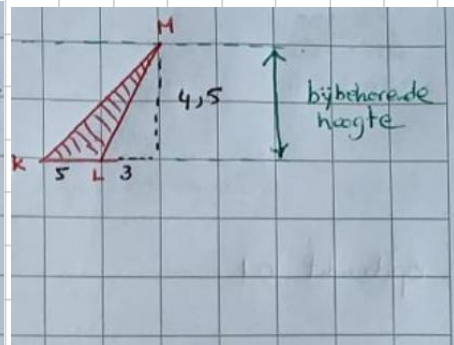 M
4,5
bijbehorende
hoogte
K 5 L 3